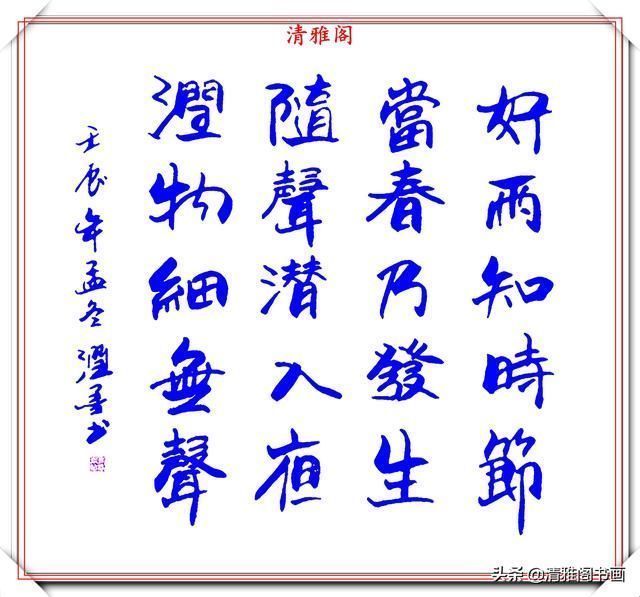 清雅阁
好雨知時節
當春乃發生
隨聲潜入夜
潤物細無聲
壬辰年孟冬書
头条 @清雅阁书画